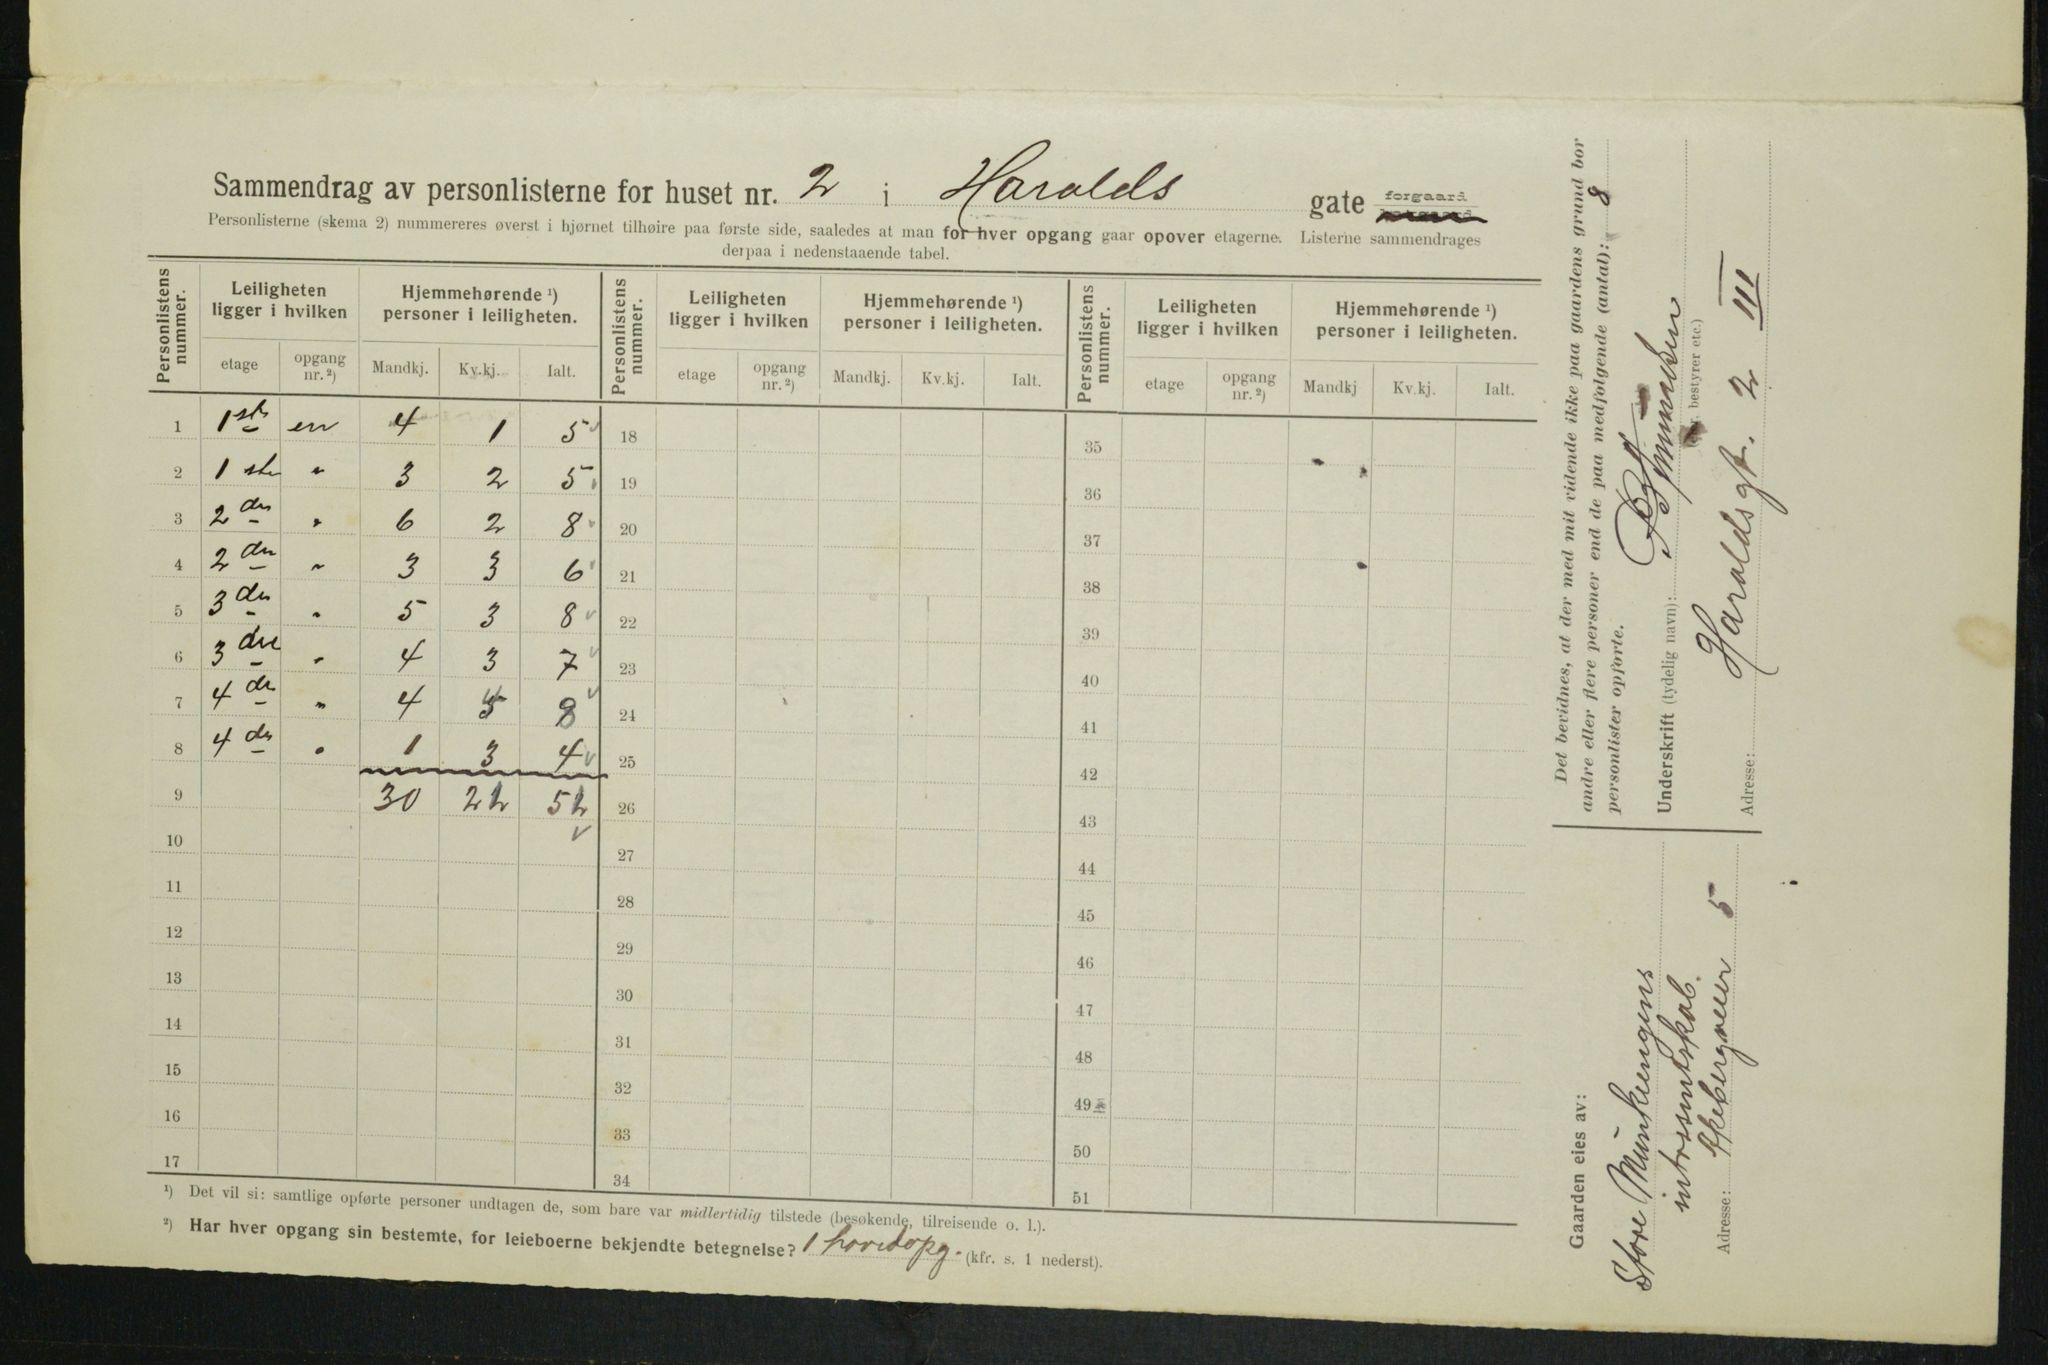 Sammendrag av personlisterne for huset nr. 2 i Haralds gate forgaard
Personlisterne (skema 2) nummereres øverst i hjørnet tilhøire paa første side, saaledes at man for hver opgang gaar opover etagerne. Listerne sammendrages
derpaa i nedenstaaende tabel.
Personlistens nummer. Leiligheten ligger i hvilken Hjemmehørende ¹) personer i leiligheten. Personlistens nummer. Leiligheten ligger i hvilken Hjemmehørende ¹) personer i leiligheten. Personlistens nummer. Leiligheten ligger i hvilken Hjemmehørende ¹) personer i leiligheten.
etage opgang nr. ²) Mandkj. Kv.kj. Ialt. etage opgang nr. ²) Mandkj. Kv.kj. Ialt. etage opgang nr. ²) Mandkj Kv.kj. Ialt.
1 1ste en 4 1 5 18 35
2 1 ste " 3 2 5 19 36
3 2den " 6 2 8 20 37
4 2den " 3 3 6 21 38
5 3die " 5 3 8 22 39
6 3die " 4 3 7 23 40
7 4de " 4 8 24 41
8 4de " 1 3 4 25 42
9 30 26 43
10 27 44
11 28 45
12 29 46
13 30 47
14 31 48
15 32 49
16 33 50
17 34 51
¹) Det vil si: samtlige opførte personer undtagen de, som bare var midlertidig tilstede (besøkende, tilreisende o. l.).
²) Har hver opgang sin bestemte, for leieboerne bekjendte betegnelse? 1 hovedopg. (kfr. s. 1 nederst).
Det bevidnes, at der med mit vidende ikke paa gaardens grund bor
andre eller flere personer end de paa medfølgende (antal): 8
personlister opførte.
Underskrift (tydelig navn):
(eier, bestyrer etc.)
Adresse: Haralds gt. 2 III
Gaarden eies av:
Store Munkengens
intresentskab.
Adresse: Ekebergveien 5